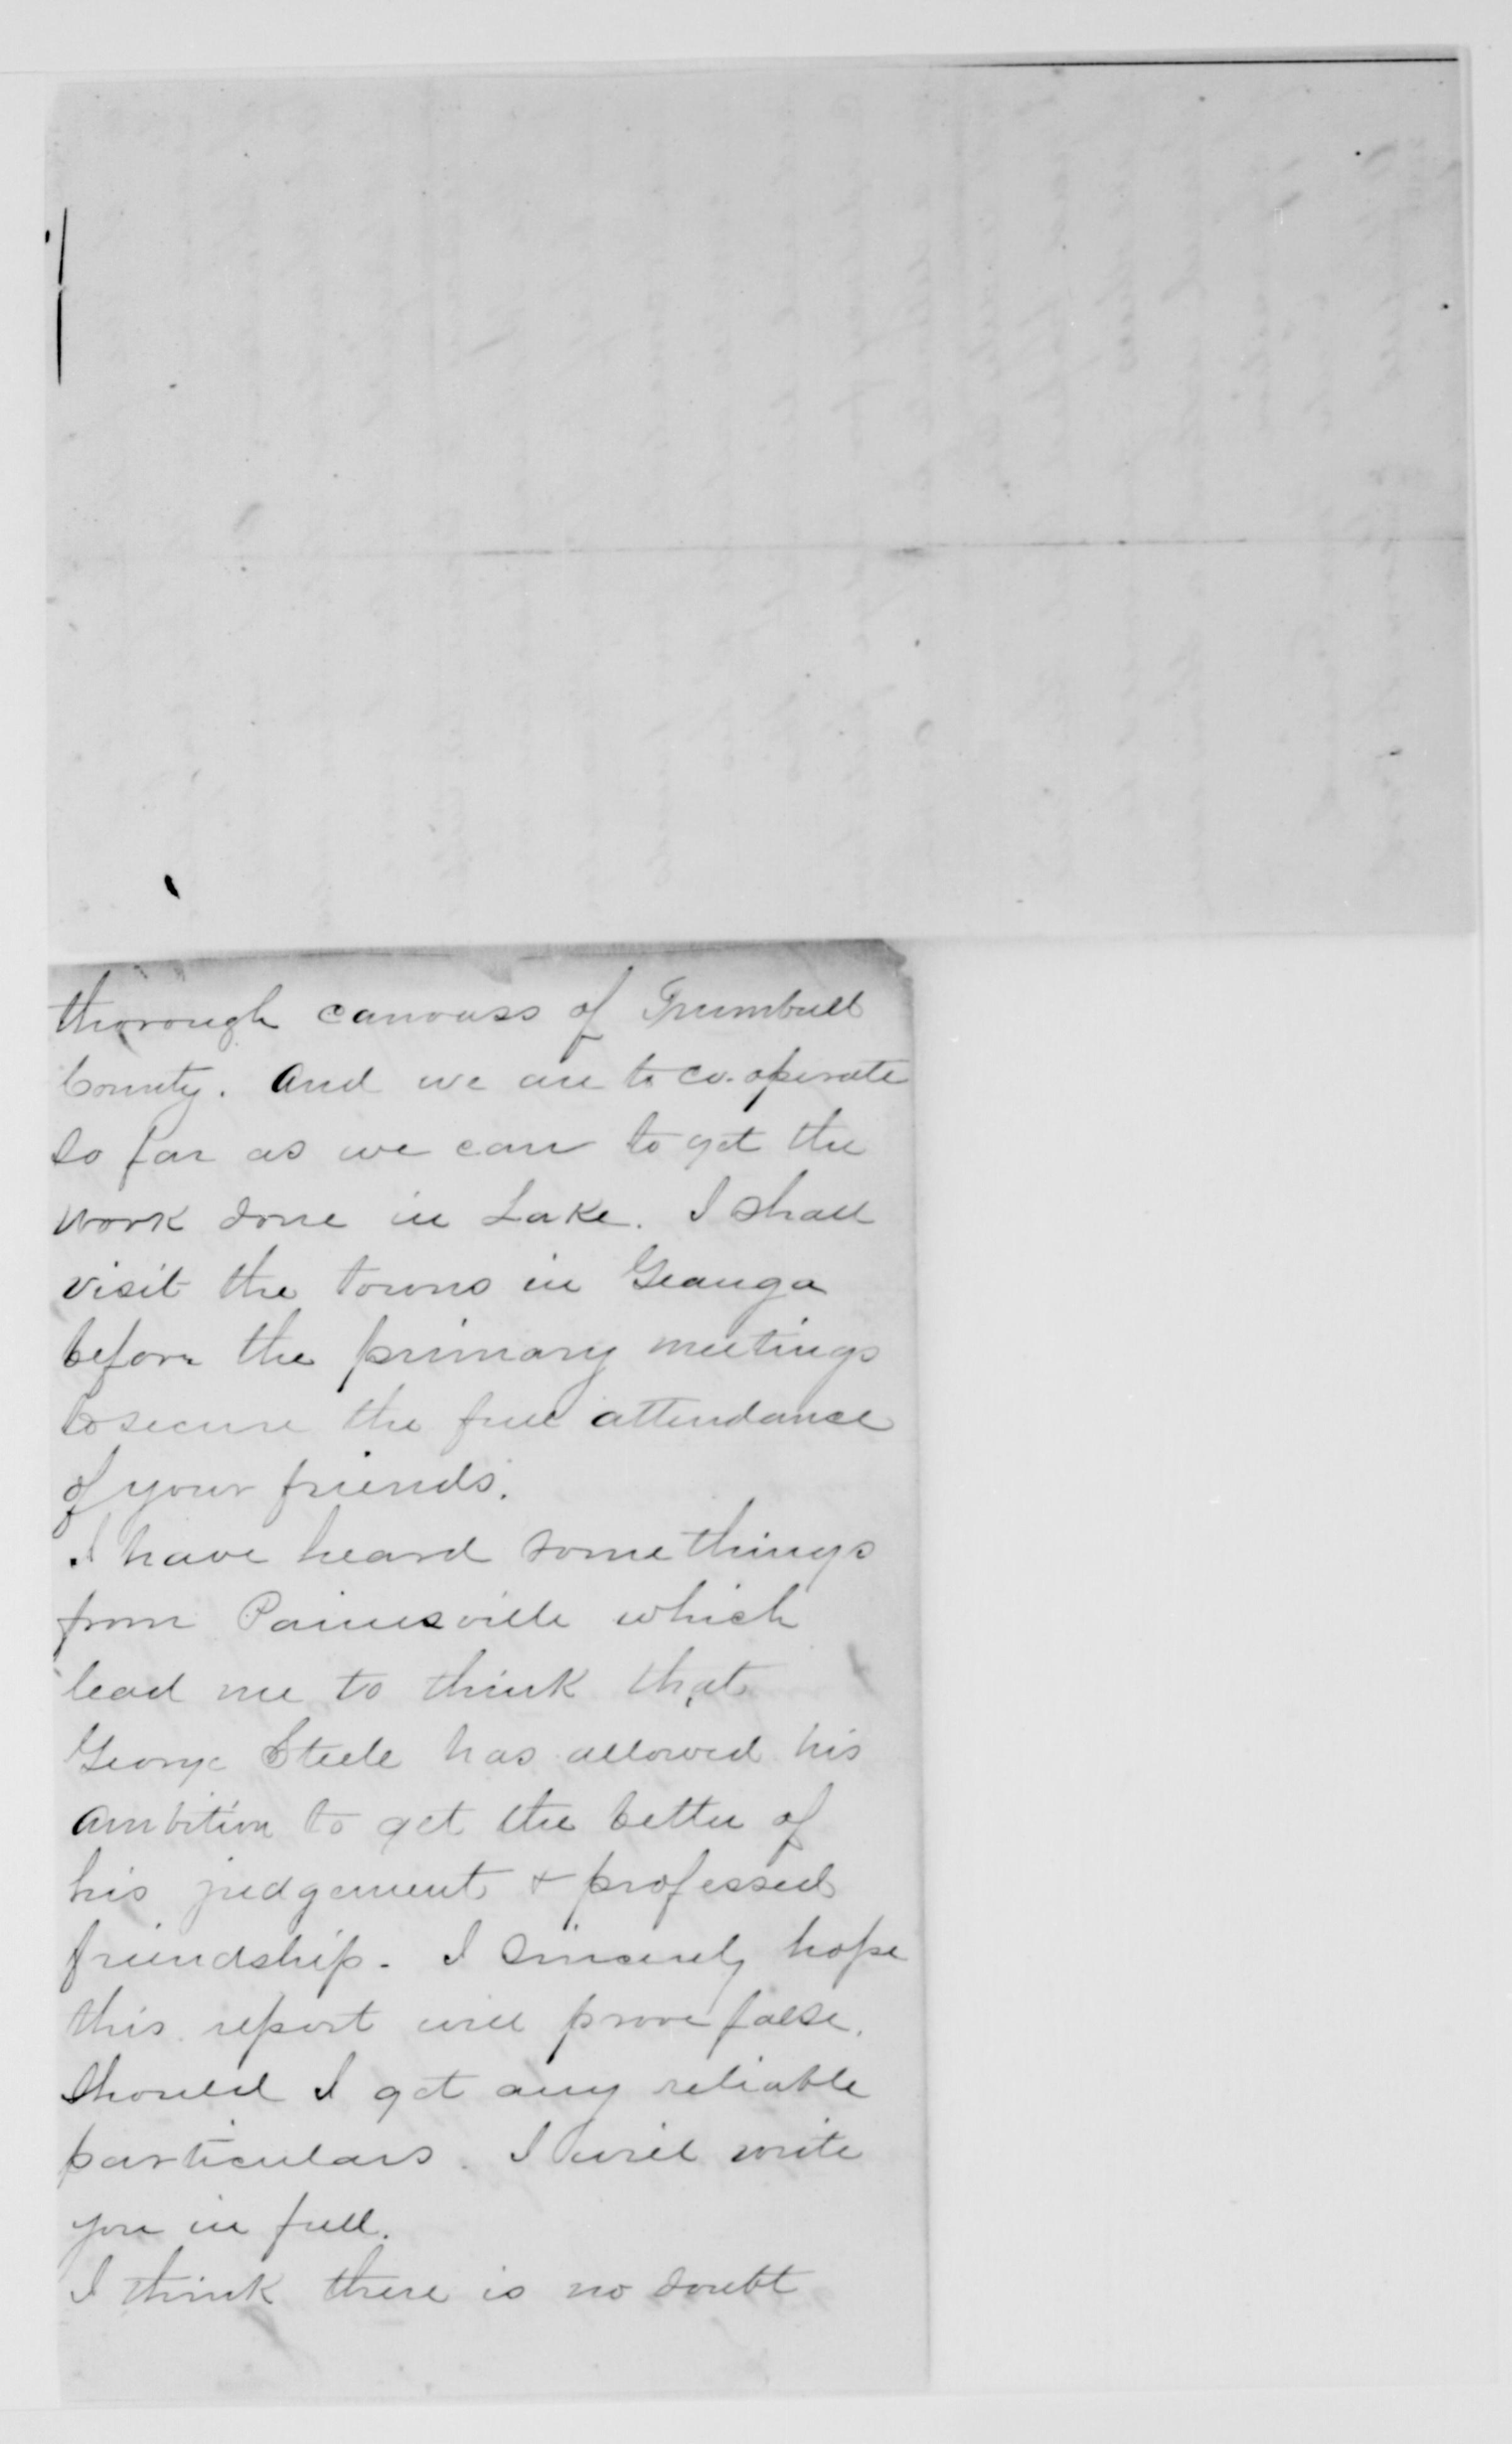 thorough canvass of Trumbull
County. And we are to co-operate
so far as we can to get the
work done in Lake. I shall
visit the towns in Geauga
before the primary meetings
to secure the full attendance
of your friends.
I have heard some things
from Painesville which
lead me to think that
George Steele has allowed his
ambition to get the better of
his judgement & professed
friendship. I sincerely hope
this report will prove false.
Should I get any reliable
particulars. I will write
you in full.
I think there is no doubt